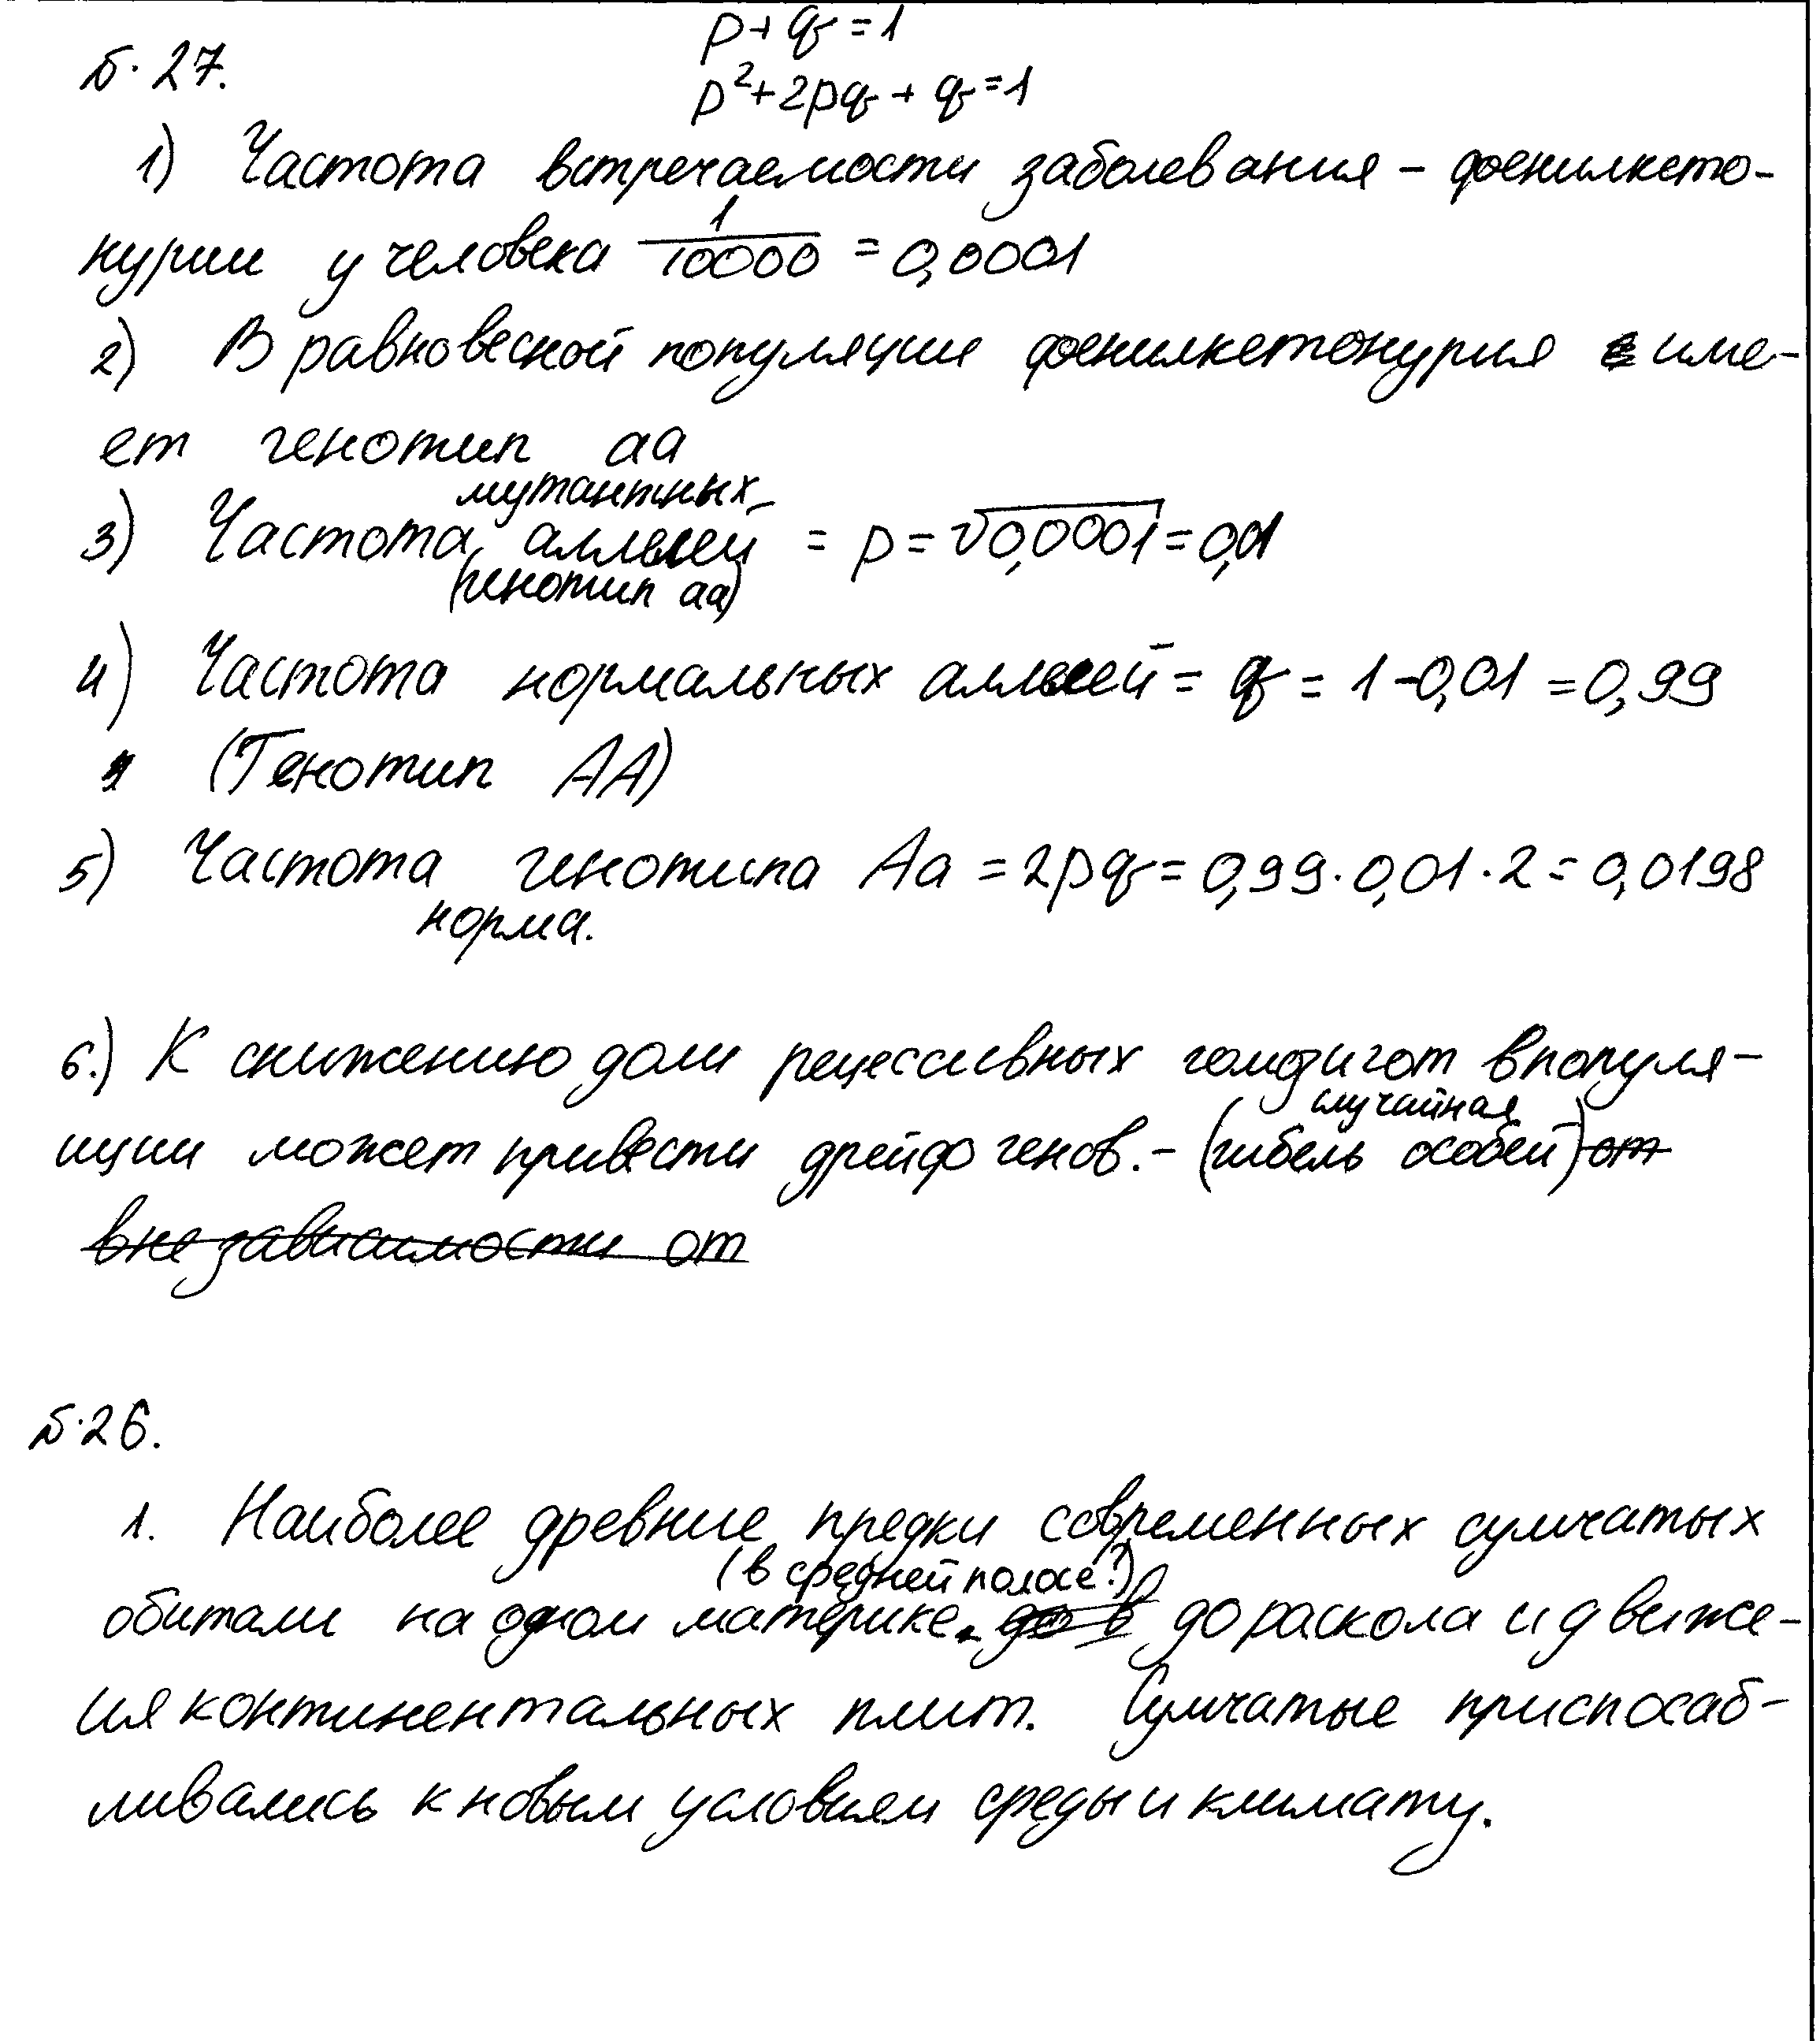 p + q = 1
Б. 27.
p² + 2pq + q = 1
1) Частота встречаемости заболевания - фенилкето-
нурии у человека 1/10000 = 0,0001
2) В равновесной популяции фенилкетонурия име-
ет генотип аа
мутантных
3) Частота аллелей = p = √0,0001 = 0,01
(генотип аа)
4) Частота нормальных аллелей = q = 1 - 0,01 = 0,99
(Генотип АА)
5) Частота генотипа Аа = 2pq = 0,99 · 0,01 · 2 = 0,0198
норма.
6.) К снижению доли рецессивных гомозигот в популя-
ции может привести дрейф генов. - (случайная гибель особей) от
вне зависимости от
Б. 26.
1. Наиболее древние предки современных сумчатых
(в средней полосе?)
обитали на одном материке до в до раскола и движе-
ия континентальных плит. Сумчатые приспосаб-
ливались к новым условиям среды и климату.